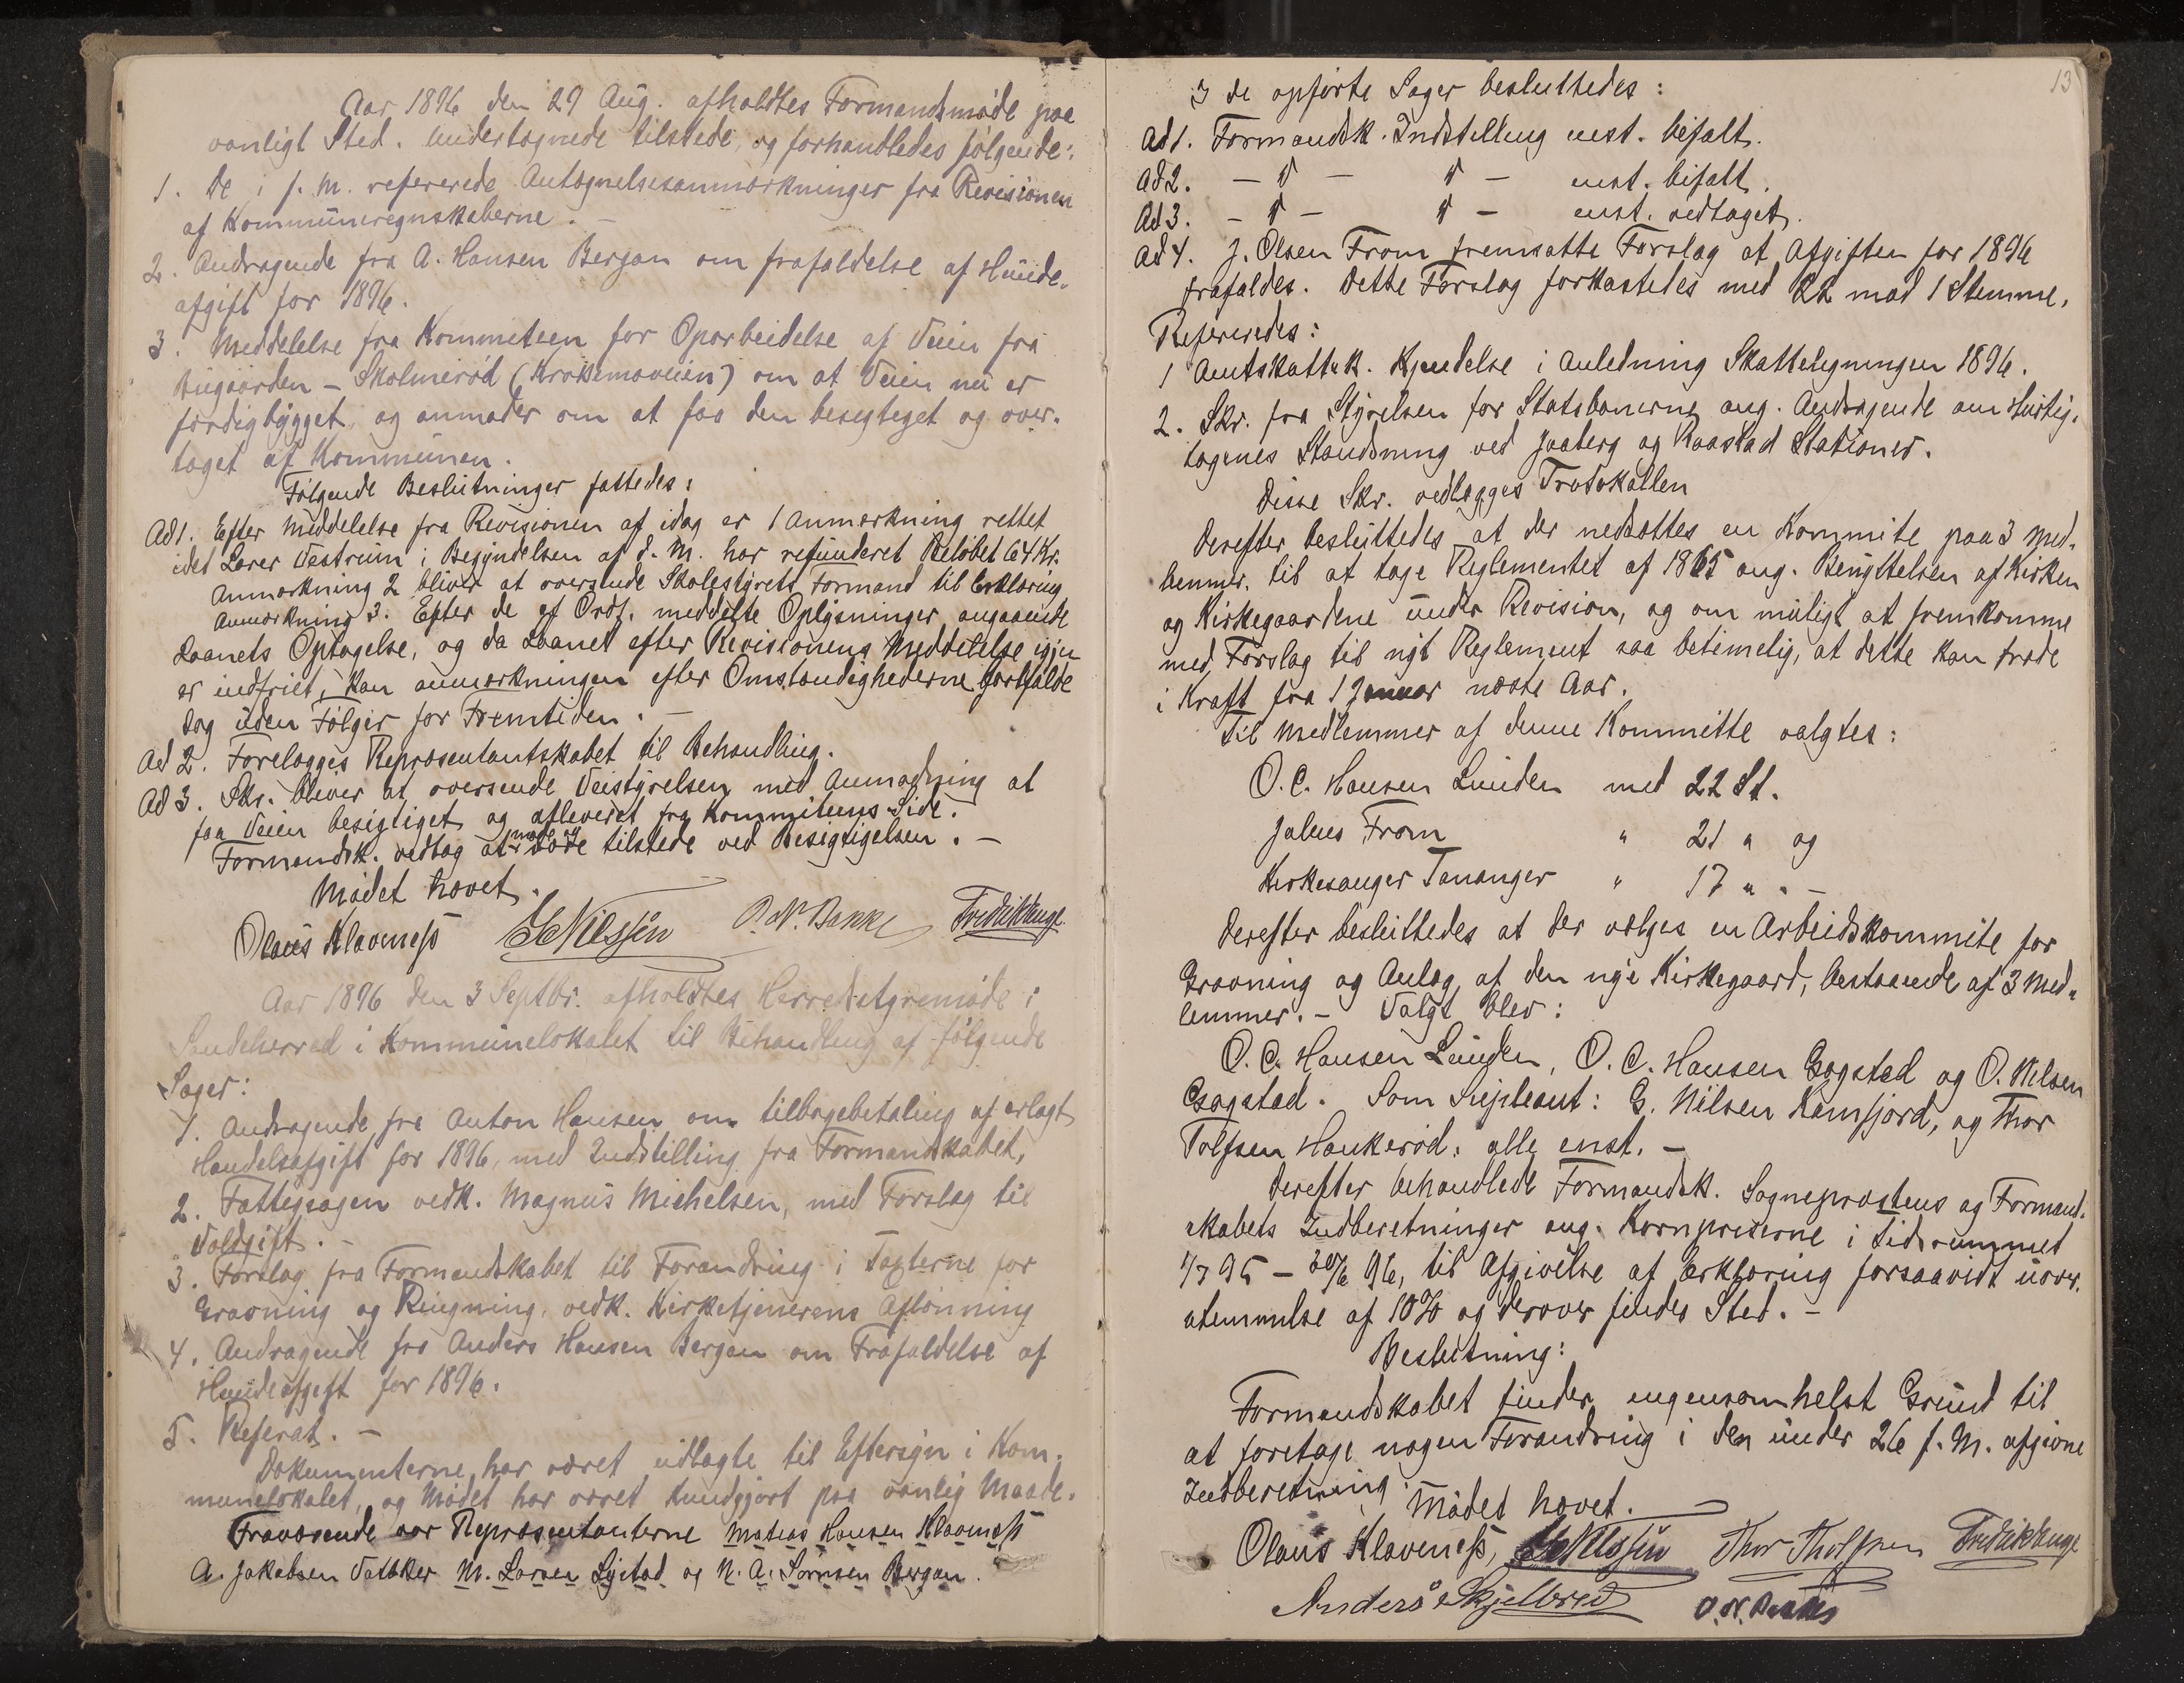 Aar 1896 den 29 Aug. afholdtes Formandsmøde paa
vanligt Sted. Undertegnede tilstede, og forhandledes følgende:
1. De i f. M. refererede Antegnelsesanmærkninger fra Revisionen
af Kommuneregnskaberne. –
2. Andragende fra A. Hansen Bergan om frafaldelse af Hunde-
afgift for 1896.
3. Meddelelse fra Kommiteen for Oparbeidelse af Veien fra
Bugaarden – Skolmerød (Krokemoveien) om at Veien nu er
færdigbygget, og anmoder om at faa den besigtiget og over-
taget af Kommunen.
Følgende Beslutninger fattedes:
Ad 1. Efter Meddelelse fra Revisionen af idag er 1 Anmærkning rettet
idet Lærer Vestrum i Begyndelsen af d. M. har refunderet Beløbet 64 Kr.
Anmærkning 2 bliver at oversende Skolestyrets Formand til Erklæring
Anmærkning 3. Efter de af Ordf. meddelte Oplysninger angaaende
Laanets Optagelse, og da Laanet efter Revisionens Meddelelse igjen
er indfriet, kan anmærkningen efter Omstændighederne bortfalde
dog uden Følger for Fremtiden. –
Ad 2. Forelægges Repræsentantskabet til Behandling.
Ad 3. Skr. bliver at oversende Veistyrelsen med Anmodning at
faa Veien besigtiget og afleveret fra Kommiteens Side.
Formandsk. vedtog at møde tilstede ved Besigtigelsen. –
Mødet hævet.
Olaus Klavenesß JNilssen O. N. Bakke Fredrik Lange
Aar 1896 den 3 Septbr. afholdtes Herredsstyremøde i
Sandeherred i Kommunelokalet til Behandling af følgende
Sager:
1. Andragende fra Anton Hansen om tilbagebetaling af erlagt
Handelsafgift for 1896, med Indstilling fra Formandskabet,
2. Fattigsagen vedk. Magnus Michelsen, med Forslag til
Voldgift. –
3. Forslag fra Formandskabet til Forandring i Taxterne for
Gravning og Ringning, vedk. Kirketjenerens Aflønning
4. Andragende fra Anders Hansen Bergan om Frafaldelse af
Hundeafgift for 1896.
5. Referat. –
Dokumenterne har været udlagte til Eftersyn i Kom-
munelokalet, og Mødet har været kundgjort paa vanlig Maade.
Fraværende var Repræsentanterne Matias Hansen Klavenesß
A. Jakobsen Vatsker M. Larsen Lystad og N. A. Sørnsen Bergan.
13
I de opførte Sager besluttedes:
Ad 1. Formandsk. Indstilling enst. bifalt.
Ad 2. – " – " – enst. bifalt.
Ad 3. – " – " – enst. vedtaget.
Ad 4. J. Olsen From fremsatte Forslag at Afgiften for 1896
frafaldes. Dette Forslag forkastedes med 22 mod 1 Stemme.
Refereredes:
1 Amtskattek. Kjendelse i Anledning Skatteligningen 1896.
2. Skr. fra Styrelsen for Statsbanerne ang. Andragende om Hurtig-
togenes Standsning ved Jaaberg og Raastad Stationer.
Disse Skr. vedlægges Protokollen
Derefter besluttedes at der nedsættes en Kommite paa 3 Med-
lemmer, til at tage Reglementet af 1865 ang. Benyttelsen af Kirken
og Kirkegaardene under Revision, og om muligt at fremkomme
med Forslag til nyt Reglement saa betimelig, at dette kan træde
i Kraft fra 1 Januar næste Aar.
Til Medlemmer af denne Kommitte valgtes:
O. C. Hansen Lunden med 22 St.
Julius From " 21 " og
Kirkesanger Tananger " 17 " . –
Derefter besluttedes at der vælges en Arbeidskommite for
Gravning og Anlæg af den nye Kirkegaard, bestaaende af 3 Med-
lemmer. – Valgt blev:
O. C. Hansen Lunden, O. C. Hansen Gogstad og O. Nilsen
Gogstad. Som Supleant: G. Nilsen Kamfjord, og Thor
Tolfsen Haukerød. alle enst. –
Derefter behandlede Formandsk. Sognepræstens og Formand-
skabets Indberetninger ang. Kornpriserne i Tidsrummet
1/7 95 – 30/6 96, til Afgivelse af Erklæring forsaavidt uover-
stemmelse af 10% og derover findes Sted. –
Beslutning:
Formandskabet finder ingensomhelst Grund til
at foretage nogen Forandring i den under 26 f. M. afgivne
Indberetning.
Mødet hævet.
Olaus Klavenesß, JNilssen Thor Tholfsen Fredrik Lange
Anders Skjelbred O. N. Bakke